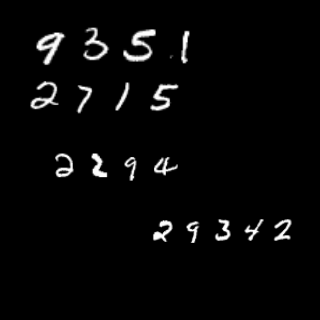 9351
2715
2294
29342